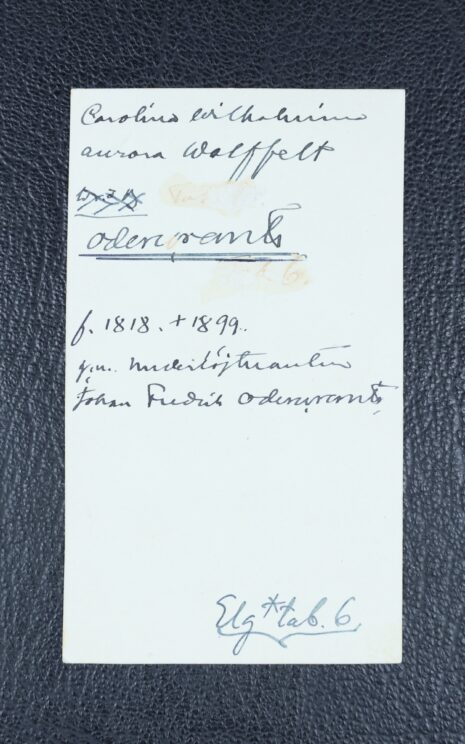 Carolina Wilhelmina
Aurora Wolffelt
Odencrants
f. 1818. + 1899.
g.m. Underlöjtnanten
Johan Fredrik Odencrants,
Elg* tab. 6.